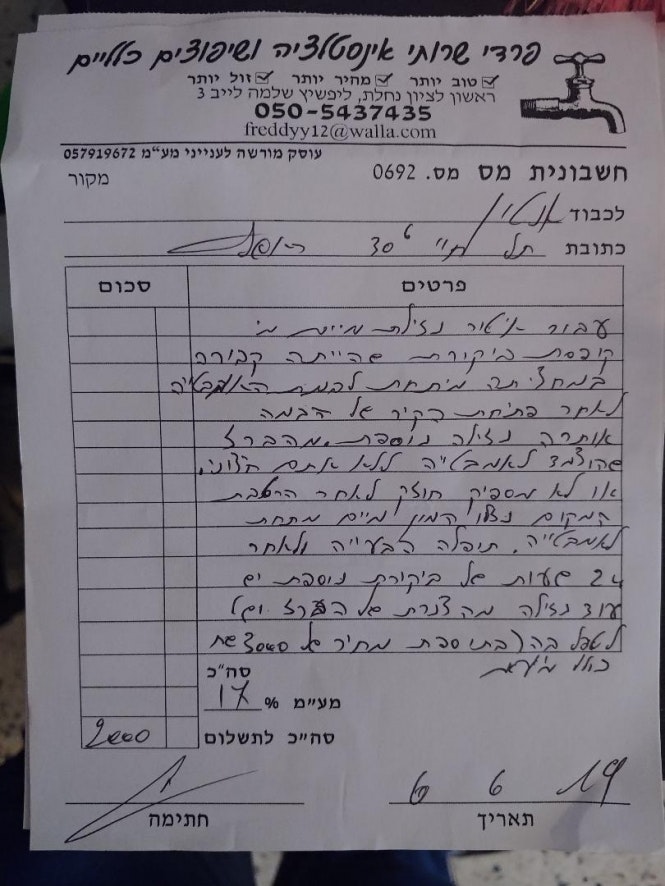 פרדי שרותי אינסטלציה ושיפוצים כלליים
טוב יותר מהיר יותר זול יותר
ראשון לציון נחלת, ליפשיץ שלמה לייב 3
050-5437435
freddyy12@walla.com
עוסק מורשה לענייני מע"מ 057919672
חשבונית מס מס. 0692
מקור
לכבוד
כתובת תל חי 30
פרטים סכום
עבור איטור נזילת מים מ
קופסת ביקורת שהייתה קבורה
במחציתה מתחת לבמת האמבטיה
לאחר פתיחת הקיר של הבמה
אותרה נזילה נוספת מהברז
שהוצמד לאמבטיה ללא אתם חיצוני
או לא מספיק חזק לאחר הרטבת
המקום נזלו המון מים מתחת
לאמבטייה. תיפלה הבעייה ולאחר
24 שעות של ביקורת נוספת יש
עוד נזילה מהצנרת של הברז ויש
לטפל בה (בתוספת מחיר של 3000 שח
כולל מע"מ
סה"כ
מע"מ % 17
סה"כ לתשלום 2000
6 6 19
תאריך חתימה